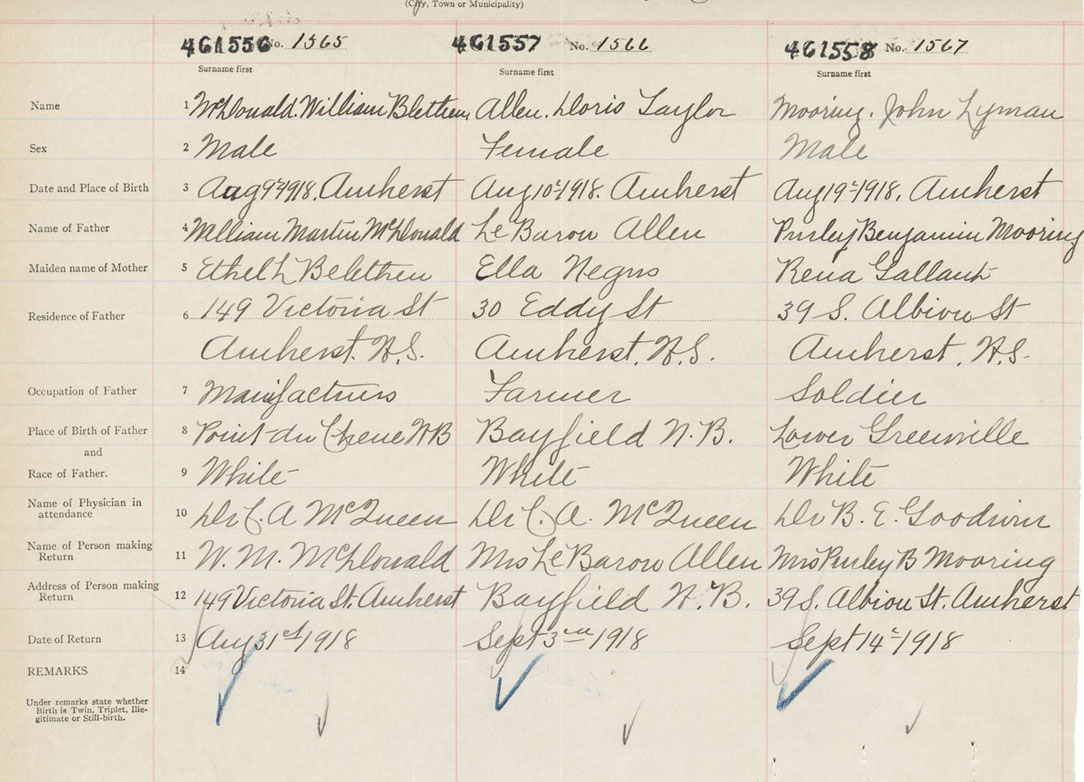 (City, Town or Municipality)
461556 No. 1565 461557 No. 1566 461558 No. 1567
Surname first Surname first Surname first
Name 1 McDonald. William Blethen Allen. Doris Taylor Mooring. John Lyman
Sex 2 Male Female Male
Date and Place of Birth 3 Aug 9th 1918. Amherst Aug 10th 1918. Amherst Aug 19th 1918. Amherst
Name of Father 4 William Martin McDonald Le Baron Allen Purley Benjamin Mooring
Maiden name of Mother 5 Ethel L Belethen Ella Negus Rena Gallant
Residence of Father 6 149 Victoria St 30 Eddy St 39 S. Albion St
Amherst. N.S. Amherst. N.S. Amherst. N.S.
Occupation of Father 7 Farmer Soldier
Place of Birth of Father 8 Point-du Chene NB Bayfield N.B. Lower Greenville
and
Race of Father. 9 White White White
Name of Physician in
attendance 10 Dr C. A McQueen Dr C. A. McQueen Dr B. E. Goodwin
Name of Person making
Return 11 W. M. McDonald Mrs Le Baron Allen Mrs Purley B Mooring
Address of Person making
Return 12 149 Victoria St. Amherst Bayfield N.B. 39 S. Albion St. Amherst
Date of Return 13 Aug 31st 1918 Sept 3rd 1918 Sept 14th 1918
REMARKS 14
Under remarks state whether
Birth is Twin, Triplet, Ille-
gitimate or Still-birth.